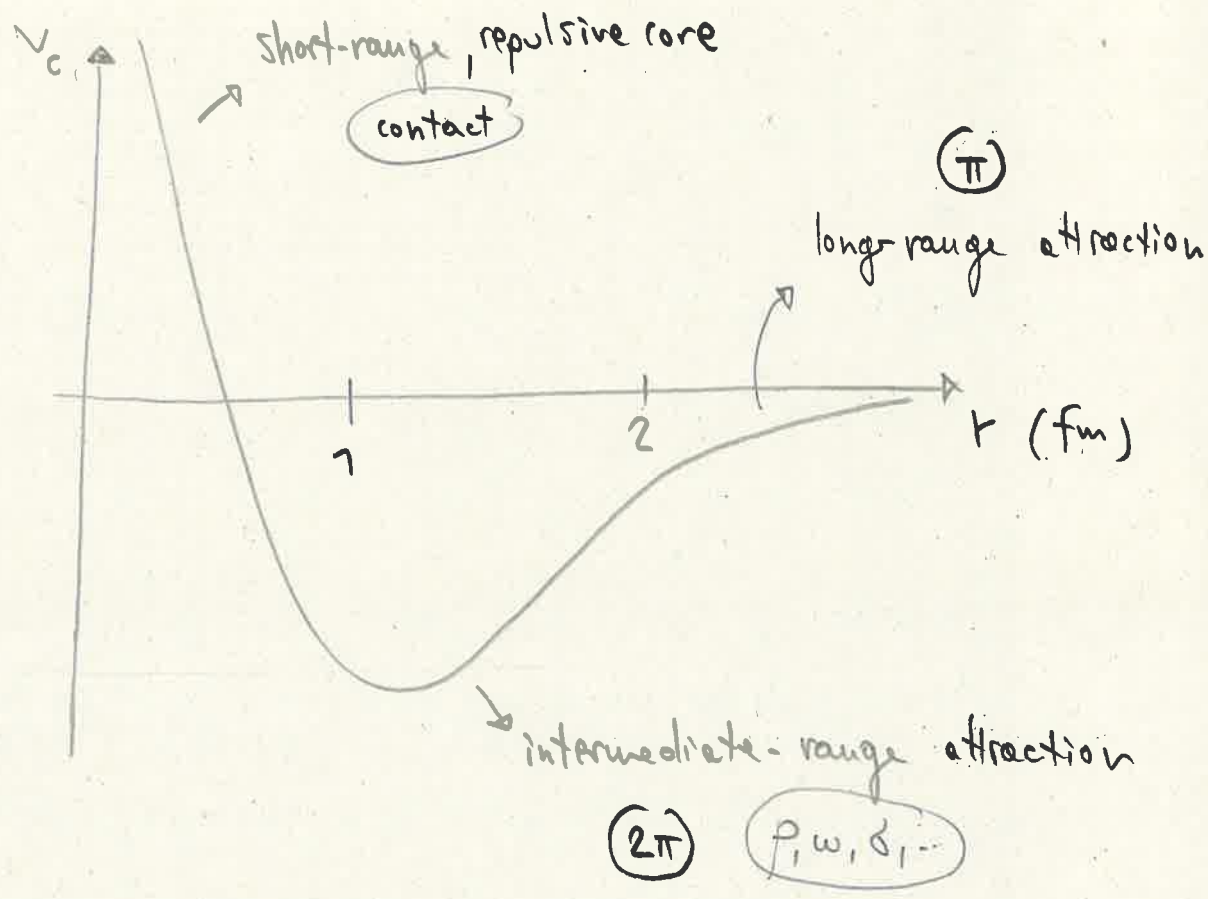 V_c
short-range, repulsive core
contact
π
long-range attraction
1
2
r (fm)
intermediate-range attraction
2π
ρ, ω, σ, ...